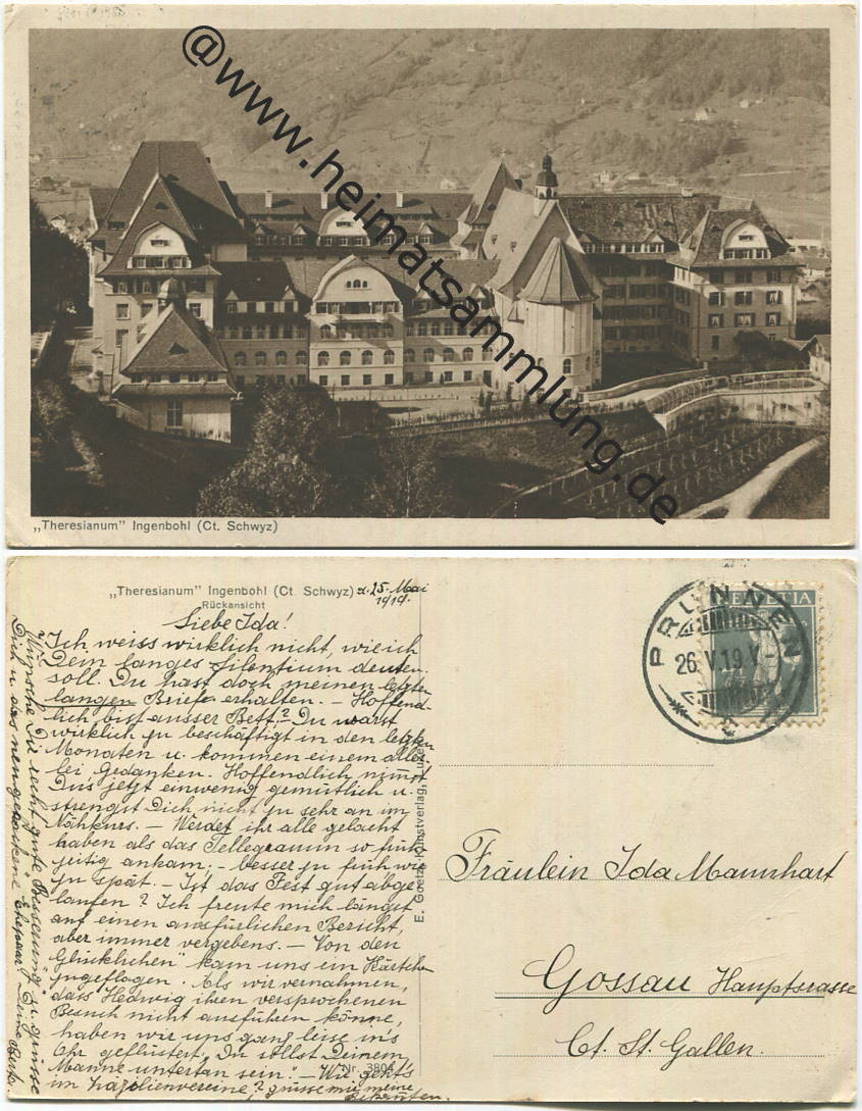 @www.heimatsammlung.de
„Theresianum" Ingenbohl (Ct. Schwyz)
„Theresianum" Ingenbohl (Ct. Schwyz) d. 25. Mai
Rückansicht
1919.
Siebe Ida!
Ich weiss wirklich nicht, wie ich
Dein langes Silentium deuten
soll. Du hast doch meinen letzten
langen Brief erhalten. – Hoffend-
lich bist ausser Bett? Du warst
wirklich zu beschäftigt in den letzten
Monaten u. kommen einem aller-
lei Gedanken. Hoffendlich nimmst
Du's jetzt einwenig gemütlich u.
strengst Dich nicht zu sehr an im
Nähkurs. – Werdet ihr alle gelacht
haben als das Tellegramm so früh-
zeitig ankam; – besser zu früh wie
zu spät. – Ist das Fest gut abge-
laufen? Ich freute mich längst
auf einen ausfürlichen Bericht,
aber immer vergebens. – Von den
„Glücklichen" kam uns ein Kärtchen
zugeflogen. Als wir vernahmen,
dass Hedwig ihren versprochenen
Besuch nicht ausführen könne,
haben wir uns ganz leise in's
Ohr geflüstert „Du sollst Deinem
Manne untertan sein". – Wie geht's
im Zäzilienvereine? grüsse mir meine
Bekannten.
Wünsche Dir recht gute Besserung u. grüsse
Dich u. das neugebackene Ehepaar Deine Berta.
E. Goetz, Kunstverlag, Luzern
Nr. 3804
HELVETIA
BRUNNEN
26.V.19.V-
Fräulein Ida Mannhart
Gossau Hauptsrasse
Ct. St. Gallen.